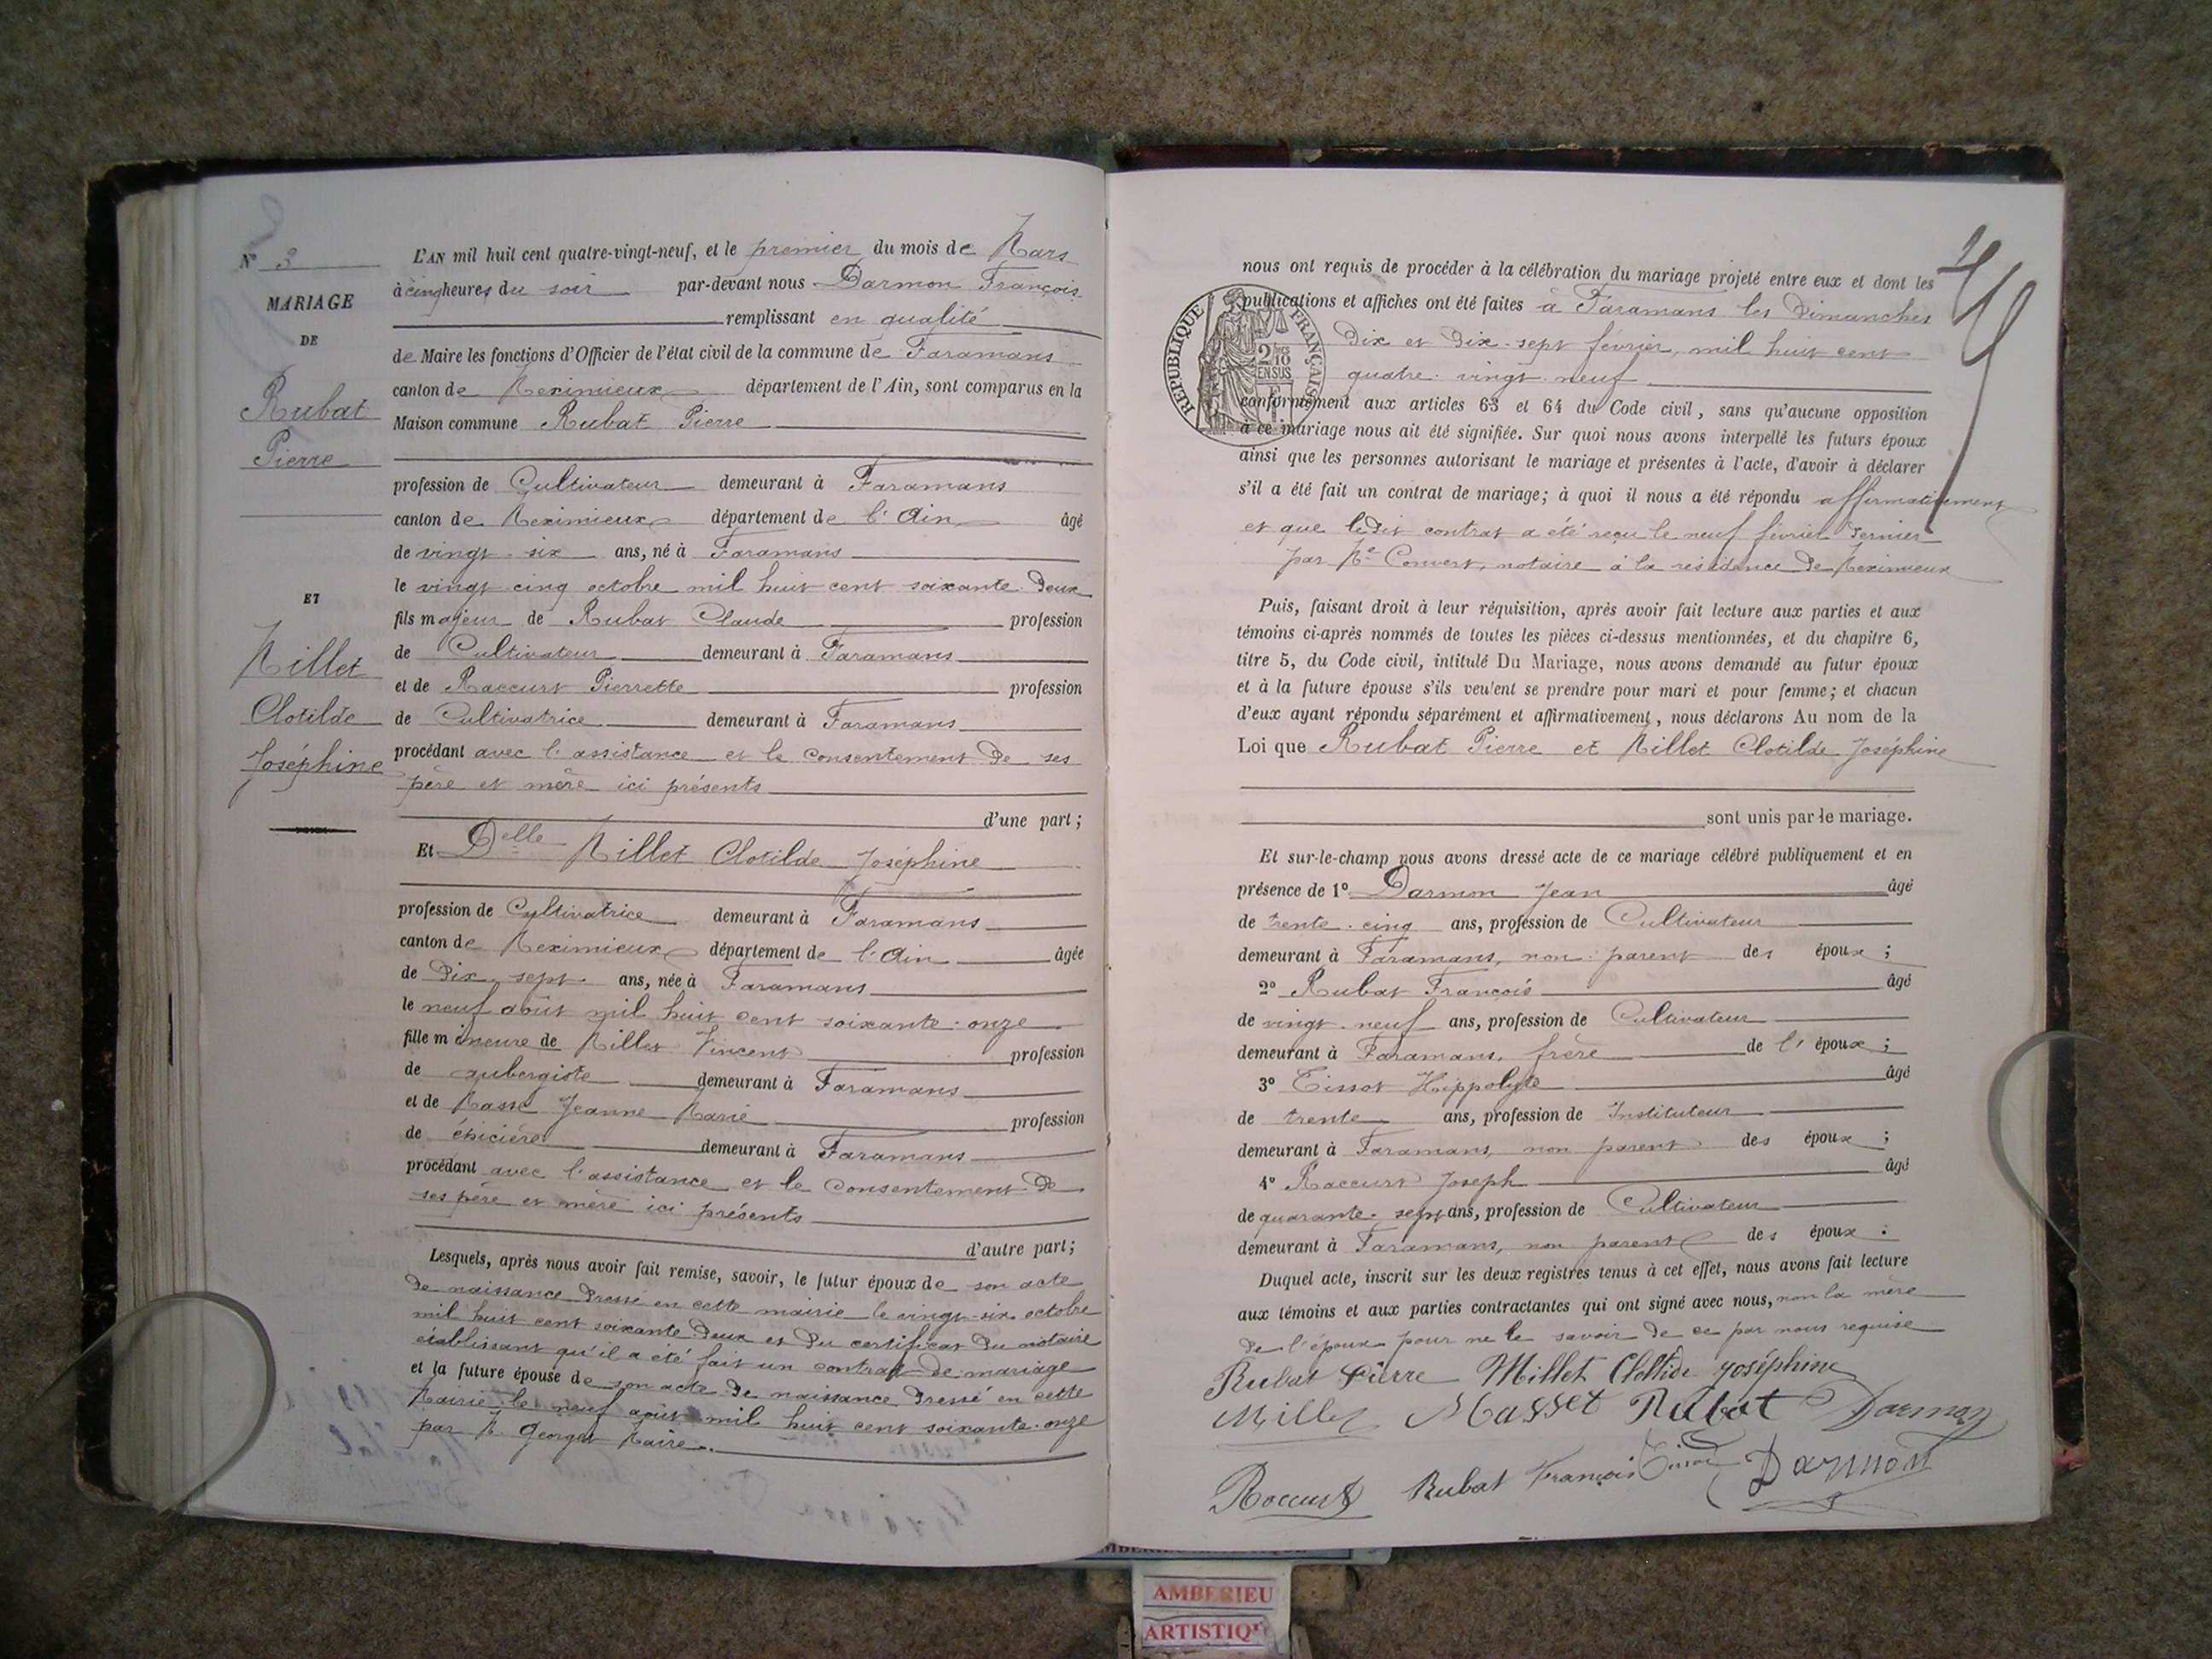 N° 3
MARIAGE
DE
Rubat
Pierre
ET
Millet
Clotilde
Joséphine
L'AN mil huit cent quatre-vingt-neuf, et le premier du mois de Mars
à cinq heures du soir par-devant nous Darmon François
remplissant en qualité
de Maire les fonctions d'Officier de l'état civil de la commune de Faramans
canton de Meximieux département de l'Ain, sont comparus en la
Maison commune Rubat Pierre
profession de Cultivateur demeurant à Faramans
canton de Meximieux département de l'Ain âgé
de vingt-six ans, né à Faramans
le vingt-cinq octobre mil huit cent soixante-deux
fils majeur de Rubat Claude profession
de Cultivateur demeurant à Faramans
et de Raccurt Pierrette profession
de Cultivatrice demeurant à Faramans
procédant avec l'assistance et le consentement de ses
père et mère ici présents
d'une part;
Et Delle Millet Clotilde Joséphine
profession de Cultivatrice demeurant à Faramans
canton de Meximieux département de l'Ain âgée
de Dix-sept ans, née à Faramans
le neuf août mil huit cent soixante-onze
fille mineure de Millet Vincent profession
de aubergiste demeurant à Faramans
et de Masset Jeanne Marie profession
de épicière demeurant à Faramans
procédant avec l'assistance et le consentement de
ses père et mère ici présents
d'autre part;
Lesquels, après nous avoir fait remise, savoir, le futur époux de son acte
de naissance dressé en cette mairie le vingt-six octobre
mil huit cent soixante-deux et du certificat du notaire
établissant qu'il a été fait un contrat de mariage
et la future épouse de son acte de naissance dressé en cette
Mairie le neuf août mil huit cent soixante-onze
par M. Georget Maire.
nous ont requis de procéder à la célébration du mariage projeté entre eux et dont les
publications et affiches ont été faites à Faramans les Dimanches
Dix et Dix-sept février, mil huit cent
quatre-vingt-neuf
RÉPUBLIQUE FRANÇAISE
conformément aux articles 63 et 64 du Code civil, sans qu'aucune opposition
à ce mariage nous ait été signifiée. Sur quoi nous avons interpellé les futurs époux
ainsi que les personnes autorisant le mariage et présentes à l'acte, d'avoir à déclarer
s'il a été fait un contrat de mariage; à quoi il nous a été répondu affirmativement
et que ledit contrat a été reçu le neuf février dernier
par Me Convert, notaire à la résidence de Meximieux
Puis, faisant droit à leur réquisition, après avoir fait lecture aux parties et aux
témoins ci-après nommés de toutes les pièces ci-dessus mentionnées, et du chapitre 6,
titre 5, du Code civil, intitulé Du Mariage, nous avons demandé au futur époux
et à la future épouse s'ils veulent se prendre pour mari et pour femme; et chacun
d'eux ayant répondu séparément et affirmativement, nous déclarons Au nom de la
Loi que Rubat Pierre et Millet Clotilde Joséphine
sont unis par le mariage.
Et sur-le-champ nous avons dressé acte de ce mariage célébré publiquement et en
présence de 1° Darmon Jean âgé
de trente-cinq ans, profession de Cultivateur
demeurant à Faramans, non parent des époux;
2° Rubat François âgé
de vingt-neuf ans, profession de Cultivateur
demeurant à Faramans, frère de l'époux;
3° Tissot Hippolyte âgé
de trente ans, profession de Instituteur
demeurant à Faramans, non parent des époux;
4° Raccurt Joseph âgé
de quarante-sept ans, profession de Cultivateur
demeurant à Faramans, non parent des époux.
Duquel acte, inscrit sur les deux registres tenus à cet effet, nous avons fait lecture
aux témoins et aux parties contractantes qui ont signé avec nous, non la mère
de l'époux pour ne le savoir de ce par nous requise
Rubat Pierre Millet Cloltide Joséphine
Millet Masset Rubat Darmon
Raccurt Rubat François Tissot Darmon
AMBERIEU
ARTISTIQ